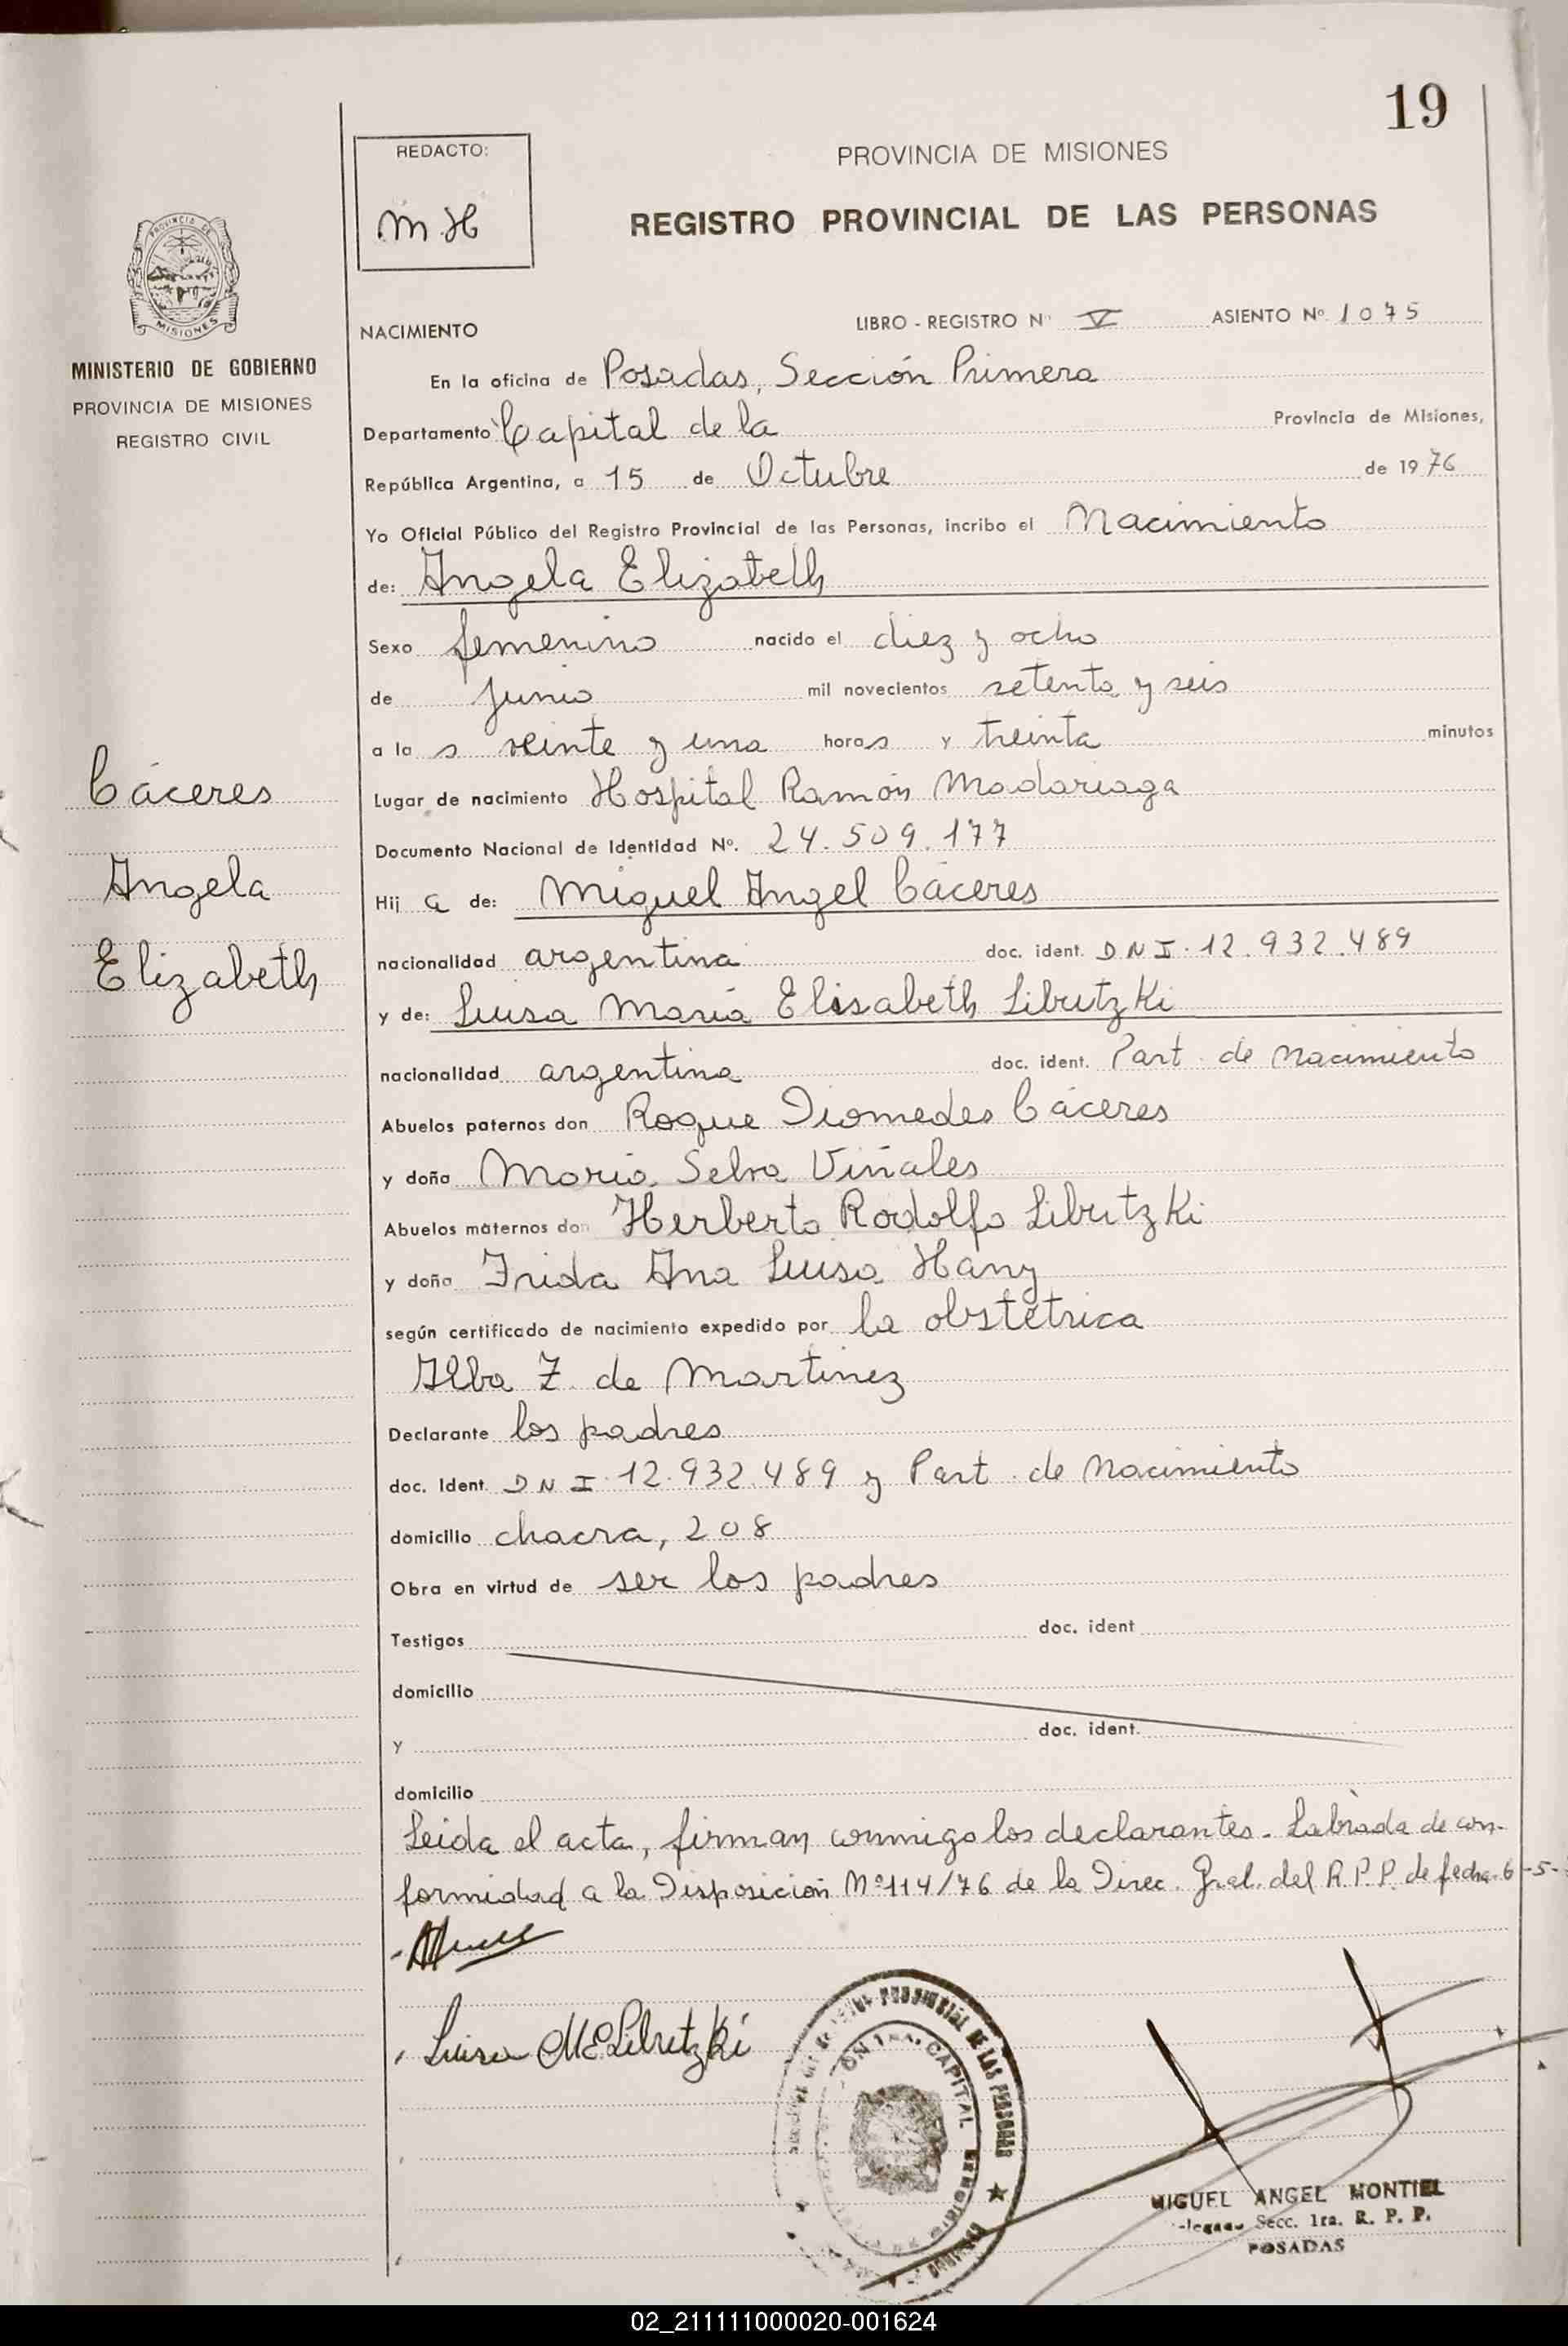 19
REDACTO:
M H
PROVINCIA DE MISIONES
REGISTRO PROVINCIAL DE LAS PERSONAS
PROVINCIA DE
MISIONES
MINISTERIO DE GOBIERNO
PROVINCIA DE MISIONES
REGISTRO CIVIL
NACIMIENTO
LIBRO - REGISTRO Nº V ASIENTO Nº 1075
En la oficina de Posadas, Sección Primera
Departamento Capital de la Provincia de Misiones,
República Argentina, a 15 de Octubre de 1976
Yo Oficial Público del Registro Provincial de las Personas, incribo el Nacimiento
de: Angela Elizabeth
Sexo femenino nacido el diez y ocho
de junio mil novecientos setenta y seis
a la s veinte y una horas y treinta minutos
Cáceres
Angela
Elizabeth
Lugar de nacimiento Hospital Ramón Madariaga
Documento Nacional de Identidad Nº. 24.509.177
Hij a de: Miguel Angel Cáceres
nacionalidad argentina doc. ident. DNI. 12.932.489
y de: Luisa María Elisabeth Librutzki
nacionalidad argentina doc. ident. Part. de Nacimiento
Abuelos paternos don Roque Diomedes Cáceres
y doña María Selva Viñales
Abuelos maternos don Herberto Rodolfo Librutzki
y doña Frida Ana Luisa Hany
según certificado de nacimiento expedido por la obstétrica
Ilba Z. de Martinez
Declarante los padres
doc. Ident. DNI. 12.932.489 y Part. de Nacimiento
domicilio chacra, 208
Obra en virtud de ser los padres
Testigos doc. ident
domicilio
y doc. ident.
domicilio
Leida el acta, firman conmigo los declarantes. Labrada de con-
formidad a la Disposición Nº 114/76 de la Direc. Gral. del R.P.P. de fecha 6-5-
Luisa M E Librutzki
PROVINCIAL DE LAS PERSONAS
CAPITAL
MIGUEL ANGEL MONTIEL
Secc. 1ra. R. P. P.
POSADAS
02_211111000020-001624